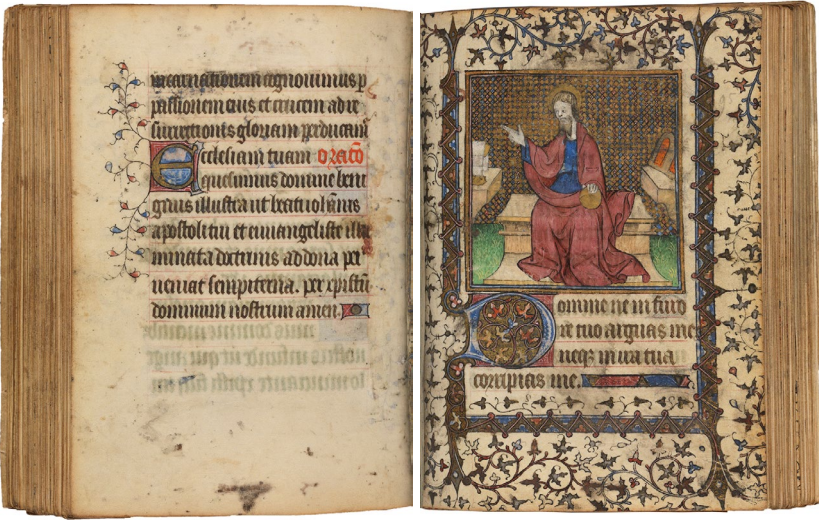 incarnationem cognouimus p
passionem eius et crucem ad re
surrectionis gloriam perducam
Ecclesiam tuam oraco
quesumus domine beni
gnus illustra ut beati iohanis
apostoli tui et euuangeliste illu
minata doctrinis ad dona per
ueniat sempiterna. per xpistu
dominum nostrum amen.
Domine ne in furo
re tuo arguas me
neqz in ira tua
corripias me.